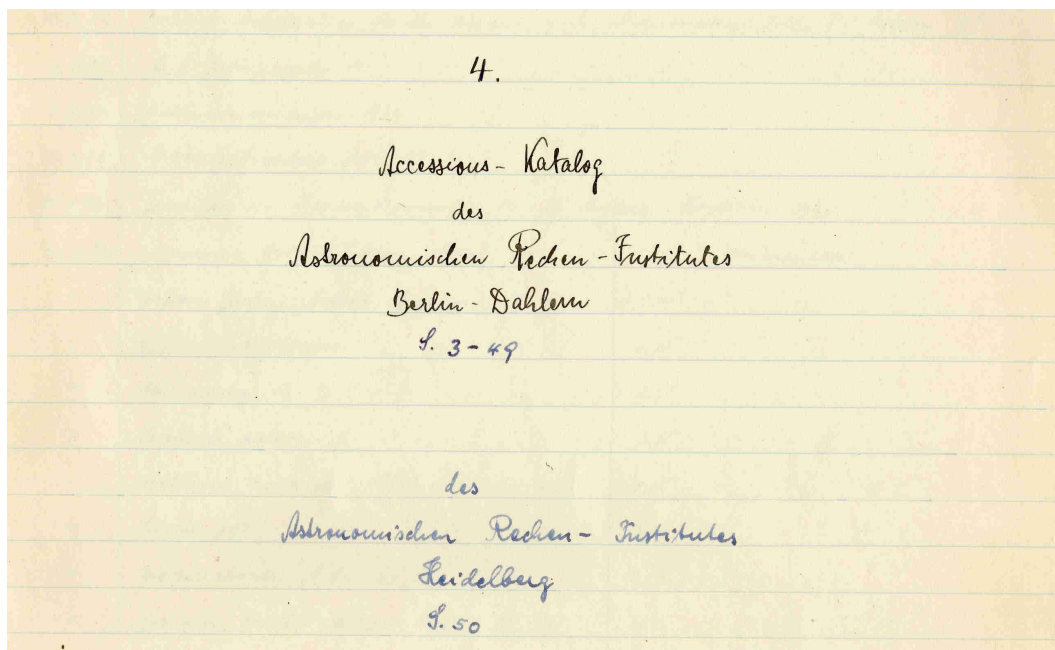 4.
Accessions-Katalog
des
Astronomischen Rechen-Institutes
Berlin-Dahlem
S. 3-49
des
Astronomischen Rechen-Institutes
Heidelberg
S. 50